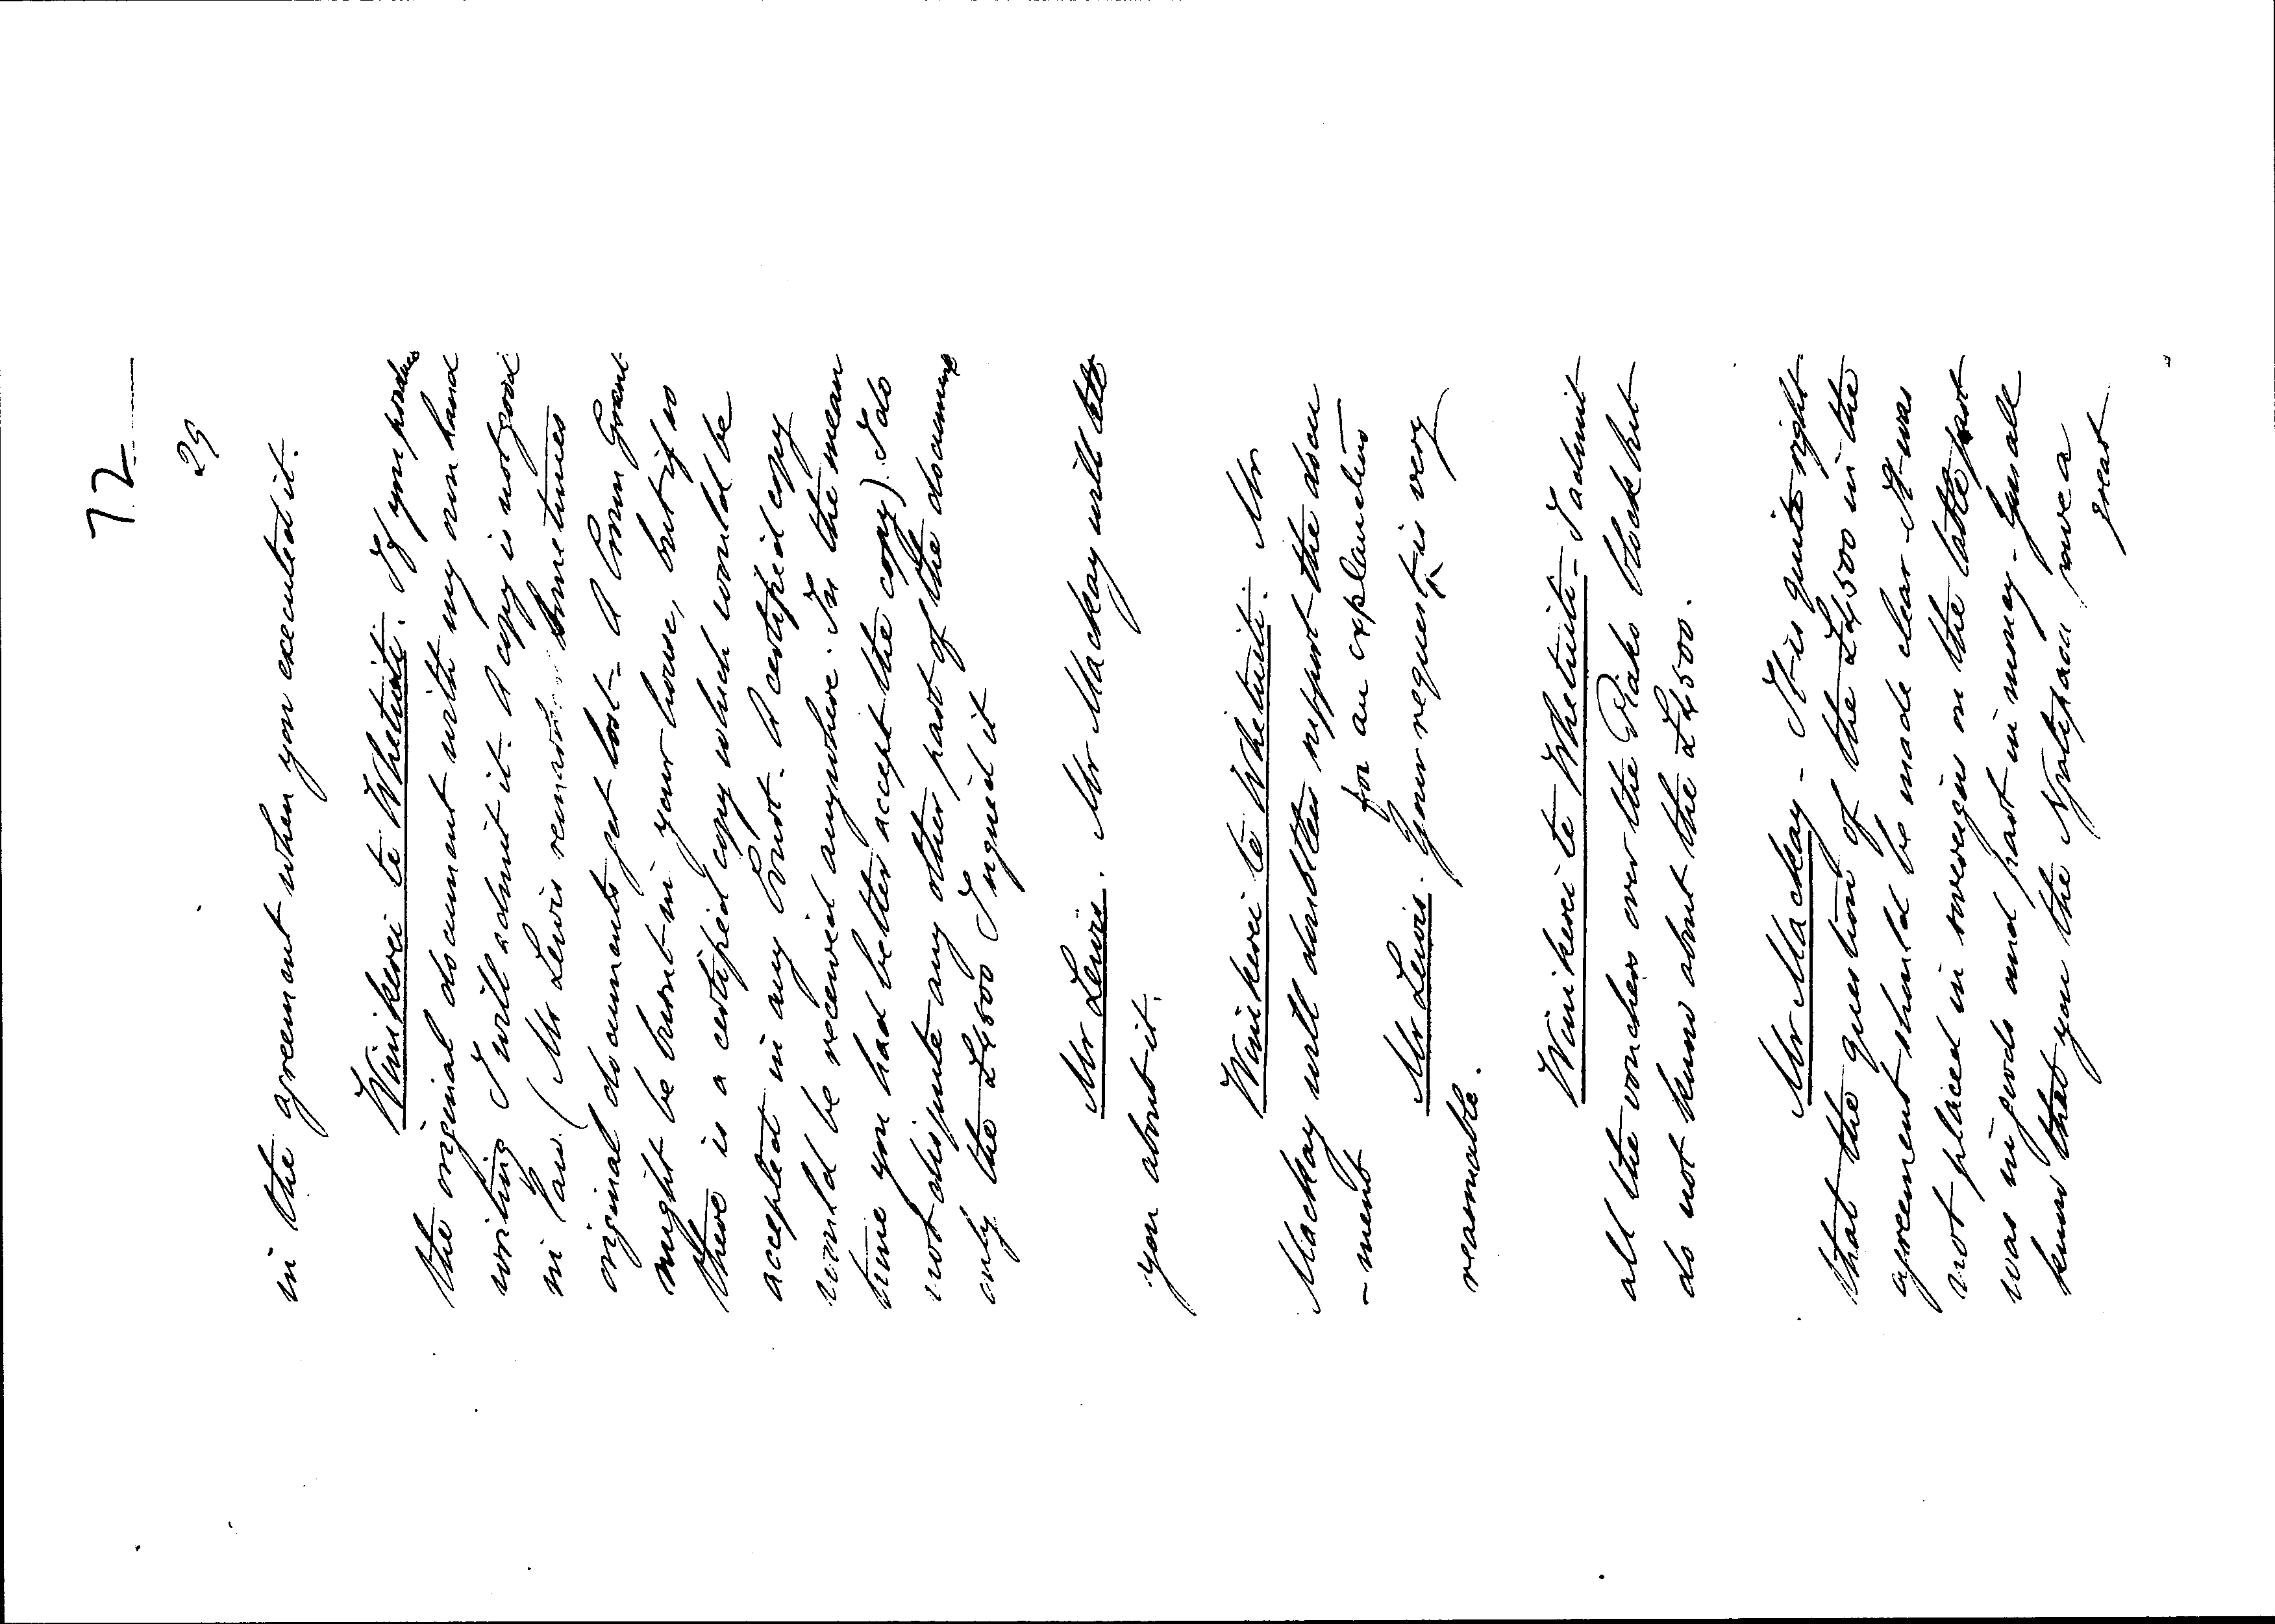 72
29
in the agreement when you executed it.
Winikerei te Whetuiti. If you produce
the original document with my own hand
writing I will admit it. A copy is not good
in law. (Mr Lewis remarked sometimes
original documents get lost - A Crown Grant
might be burnt in your house, but if so
there is a certified copy which would be
accepted in any Court. A certified copy
would be received anywhere. In the mean
time you had better accept the copy). I do
not dispute any other part of the document
only the £4500 I signed it
Mr Lewis. Mr Mackay will tell
you about it.
Winikerei te Whetuiti. Mr
Mackay will doubtless support the docu
-ment
for an explanation
Mr Lewis. Your request ^ is very
reasonable.
Winikerei te Whetuiti - I admit
all the vouchers over the Piako block but
do not know about the £4500.
Mr Mackay - It is quite right
that the question of the £4500 in the
agreement should be made clear. It was
not placed in sovereigns on the table part
was in goods and part in money - You all
know that you the Ngatipaoa owe a
great